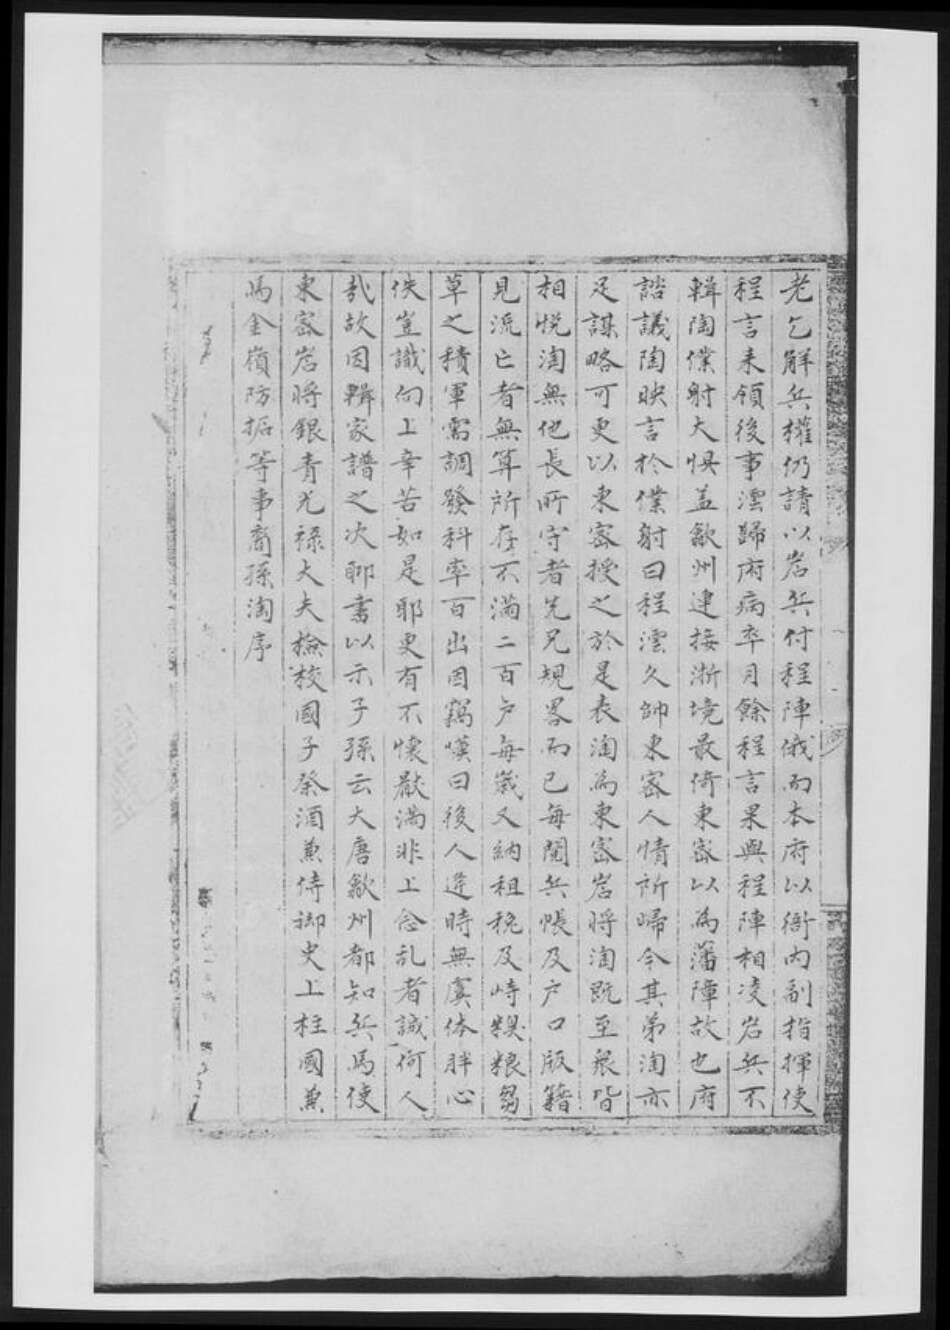 老乞解兵權仍請以岩兵付程陣俄而本府以衙内副指揮使
程言來領後事澐歸府病卒月餘程言果與程陣相凌岩兵不
輯陶僕射大惧盖歙州連接浙境最倚東宻以為藩障故也府
諮議陶映言於僕射曰程澐久帥東宻人情所歸今其弟淘亦
足謀略可更以東宻授之於是表淘為東宻岩將淘既至衆皆
相悦淘無他長所守者先兄規畧而已每閲兵帳及户口版籍
見流亡者無算所存不滿二百户每歲又納租税及峙糗粮芻
草之積軍需調發科率百出因竊嘆曰後人逢時無虞体胖心
佚豈識向上辛苦如是耶更有不懷厭满非上念乱者誠何人
哉故因輯家譜之次聊書以示子孫云大唐歙州都知兵馬使
東宻岩將銀青光禄大夫檢校國子祭酒兼侍御史上柱國兼
馬金嶺防拓等事裔孫淘序